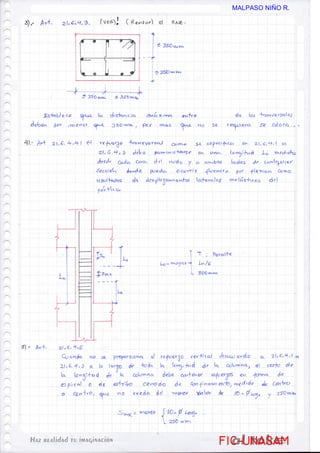 MALPASO NIÑO R.
3).- Art. 21.6.4.3. (VER)! (Revisar) el RNE.
≤ 350mm
≤ 350mm
≤ 350mm ≤ 350mm
Establece que la distancia máxima entre de las transversales
deben ser menor que 350mm, por mas que no se requiera se coloca.-
4).- Art 21.6.4.4) el refuerzo transversal como se especifica en 21.6.4.1 a
21.6.4.3 debe suministrarse en una longitud Lo medida
desde cada cara del nudo y a ambos lados de cualquier
sección donde pueda ocurrir fluencia por flexion como
resultado de desplazamientos laterales inelásticos del
pórtico.
Lo
Lo
Lo
Lo = mayor
Peralte
Ln/6
500mm
5) = Art. 21.6.4.5
Cuando no se proporciona el refuerzo vertical discutido a 21.6.4.1 a
21.6.4.3 a lo largo de toda la longitud de la columna, el resto de
la longitud de la columna debe contener refuerzos en forma de
espiral o de estribo cerrado de confinamiento, medido de centro
a centro, que no exceda del menor valor de 10·Ølong, y 250mm
Smax = menor
10·Ø Long.
250 mm
Haz realidad tu imaginación
FIC-UNASAM